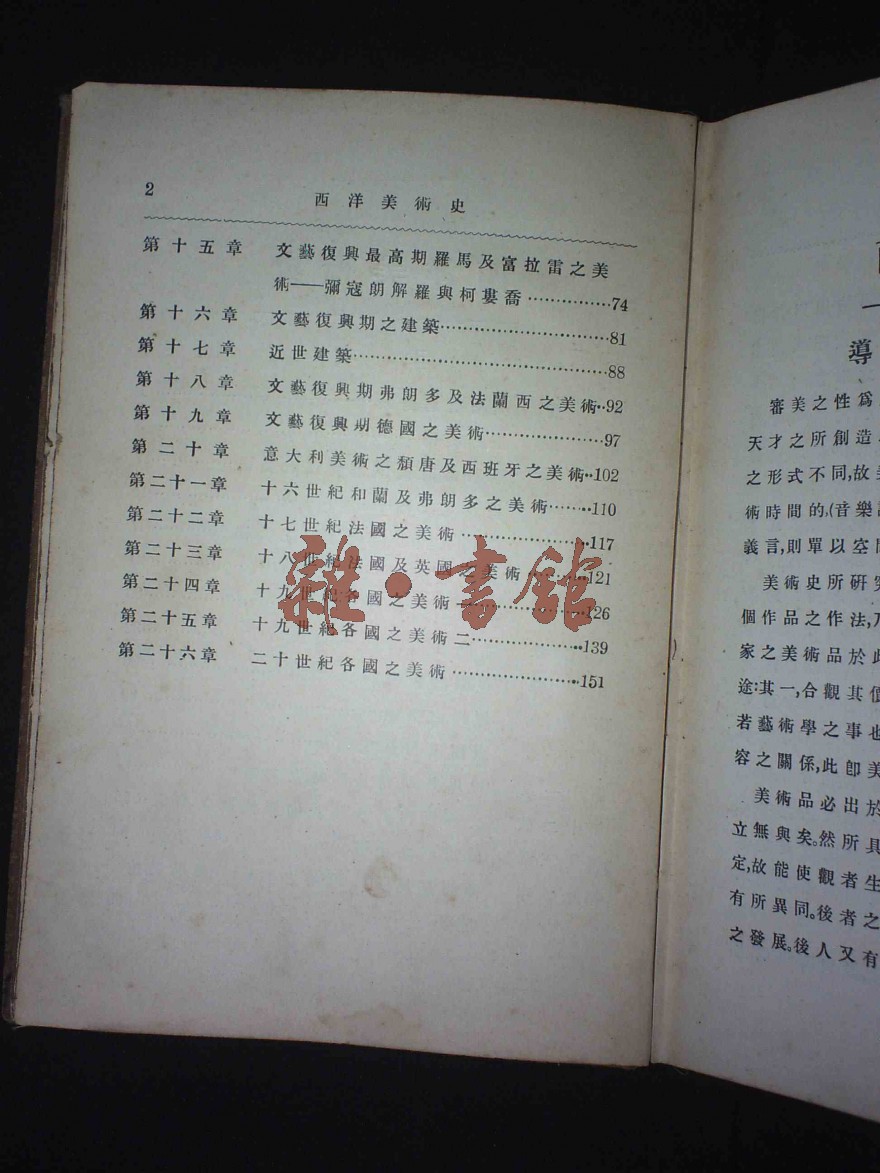 2
西洋美術史
第十五章 文藝復興最高期羅馬及富拉雷之美
術——彌寇朗解羅與柯婁喬……………74
第十六章 文藝復興期之建築……………………81
第十七章 近世建築………………………………88
第十八章 文藝復興期弗朗多及法蘭西之美術··92
第十九章 文藝復興期德國之美術………………97
第二十章 意大利美術之頹唐及西班牙之美術··102
第二十一章 十六世紀和蘭及弗朗多之美術………110
第二十二章 十七世紀法國之美術…………………117
第二十三章 十八世紀法國及英國之美術…………121
第二十四章 十九世紀各國之美術一………………126
第二十五章 十九世紀各國之美術二………………139
第二十六章 二十世紀各國之美術…………………151
雜·書館
導
審美之性爲
天才之所創造
之形式不同,故
術時間的,(音樂
義言,則單以空
美術史所研究
個作品之作法,
家之美術品於此
途:其一,合觀其價
若藝術學之事也
容之關係,此卽美
美術品必出於
立無與矣。然所具
定,故能使觀者生
有所異同。後者之
之發展。後人又有